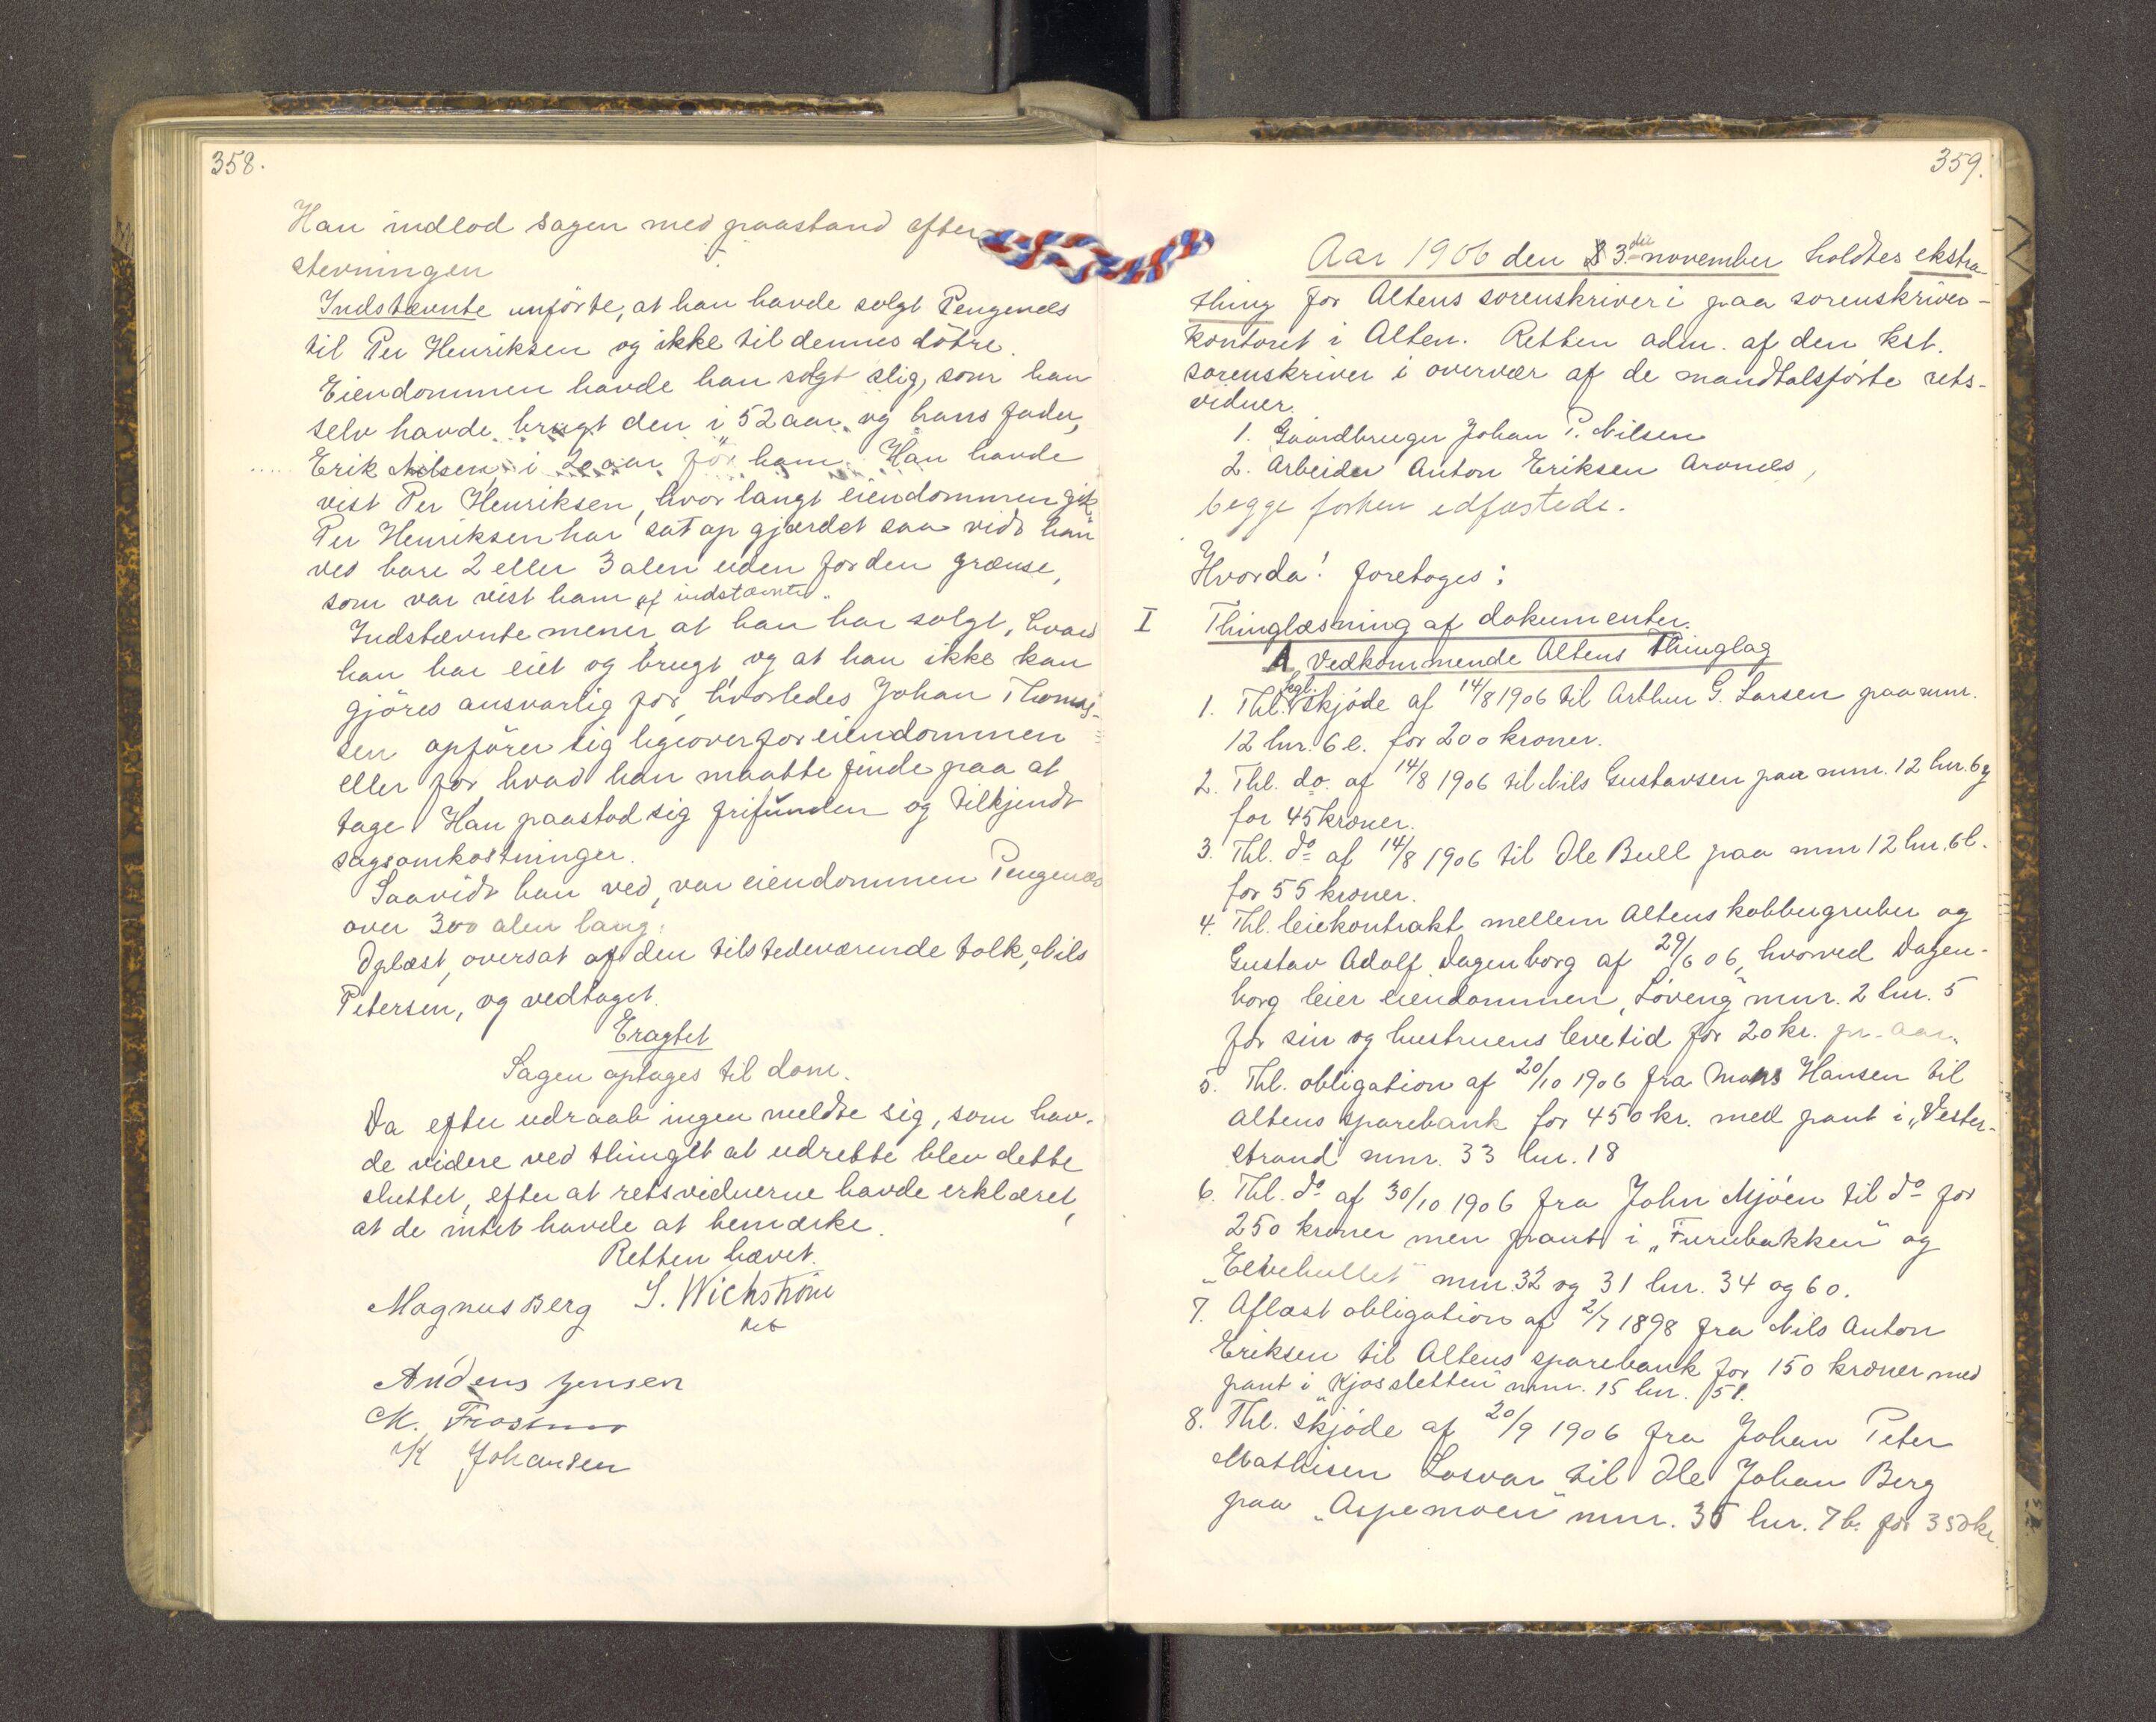 358.
Han indlod sagen med paastand efter
stevningen
Indstævnte anförte, at han havde solgt Pengenes
til Per Henriksen og ikke til dennes dötre.
Eiendommen havde han solgt slig, som han
selv havde brugt den i 52 aar og hans fader,
Erik Nilsen, i 20 aar för ham. Han havde
vist Per Henriksen, hvor langt eiendommen gik
Per Henriksen har sat op gjærdet saa vidt han
ved bare 2 eller 3 alen uden for den grænse,
som var vist ham af indstævnte.
Indstævnte mener, at han har solgt, hvad
han har eiet og brugt, og at han ikke kan
gjöres ansvarlig for, hvorledes Johan Thomas-
sen opförer sig ligeoverfor eiendommen
eller for hvad han maatte finde paa at
tage. Han paastod sig frifunden og tilkjendt
sagsomkostninger.
Saavidt han ved, var eiendommen Pengenes
over 300 alen lang.
Oplæst, oversat af den tilstedeværende tolk, Nils
Petersen, og vedtaget.
Eragtet
Sagen optages til dom.
Da efter udraab ingen meldte sig, som hav-
de videre ved thinget at udrette blev dette
sluttet, efter at retsvidnerne havde erklæret,
at de intet havde at bemærke.
Retten hævet.
Magnus Berg S. Wichström
kst
Anders Jensen
M.
K Johansen
359.
Aar 1906 den 3.die november holdtes ekstra
thing for Altens sorenskriveri paa sorenskriver-
kontoret i Alten. Retten adm. af den kst.
sorenskriver i overvær af de mandtalsförte rets-
vidner.
1. Gaardbruger Johan P. Nilsen
2. Arbeider Anton Eriksen Aronnes,
begge forhen edfæstede.
Hvorda! foretoges:
I Thinglæsning af dokumenter.
A Vedkommende Altens Thinglag
1. Thl. kgl. skjöde af 14/8 1906 til Arthur G. Larsen paa mnr.
12 lnr. 6 e. for 200 kroner.
2. Thl. do. af 14/8 1906 til Nils Gustavsen paa mnr. 12 lnr. 6 g
for 45 kroner.
3. Thl. do af 14/8 1906 til Ole Bull paa mnr 12 lnr. 6 l.
for 55 kroner.
4. Thl. leiekontrakt mellem Altens kobbergruber og
Gustav Adolf Dagenborg af 29/6 06, hvorved Dagen-
borg leier eiendommen „Löveng" mnr. 2 lnr. 5
for sin og hustruens levetid for 20 kr. pr. aar.
5. Thl. obligation af 20/10 1906 fra Mons Hansen til
Altens sparebank for 450 kr. med pant i „Vester-
strand" mnr. 33 lnr. 18
6. Thl. do af 30/10 1906 fra John Mjöen til do for
250 kroner men pant i „Furubakken" og
„Elvehullet" mnr. 32 og 31 lnr. 34 og 60.
7. Aflæst obligation af 2/7 1898 fra Nils Anton
Eriksen til Altens sparebank for 150 kroner med
pant i „Kjosletten" mnr. 15 lnr. 51.
8. Thl. skjöde af 20/9 1906 fra Johan Peter
Mathisen Losvar til Ole Johan Berg
paa „Aspemoen" mnr. 35 lnr. 7 b. for 350 kr.